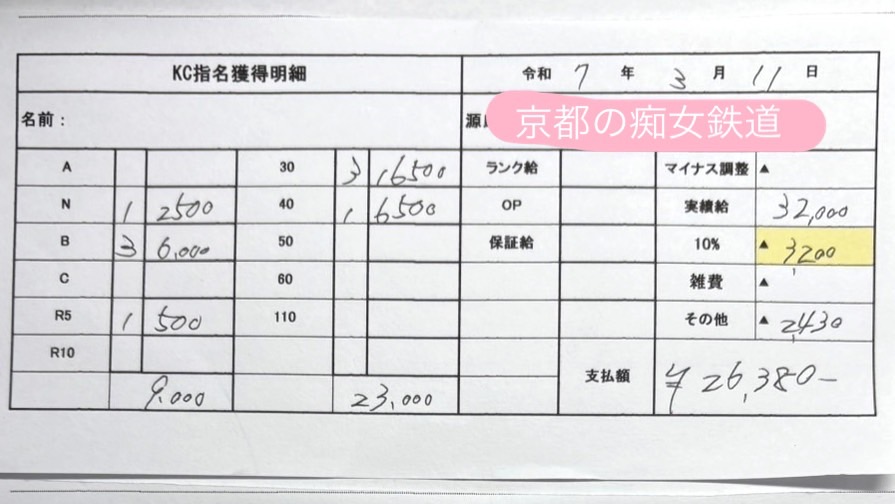 KC指名獲得明細 令和 7 年 3 月 11 日
名前： 源 京都の痴女鉄道
A 30 3 16500 ランク給 マイナス調整 ▲
N 1 2500 40 1 6500 OP 実績給 32,000
B 3 6,000 50 保証給 10% ▲ 3,200
C 60 雑費 ▲
R5 1 500 110 その他 ▲ 2,430
R10
9,000 23,000 支払額 ¥26,380-